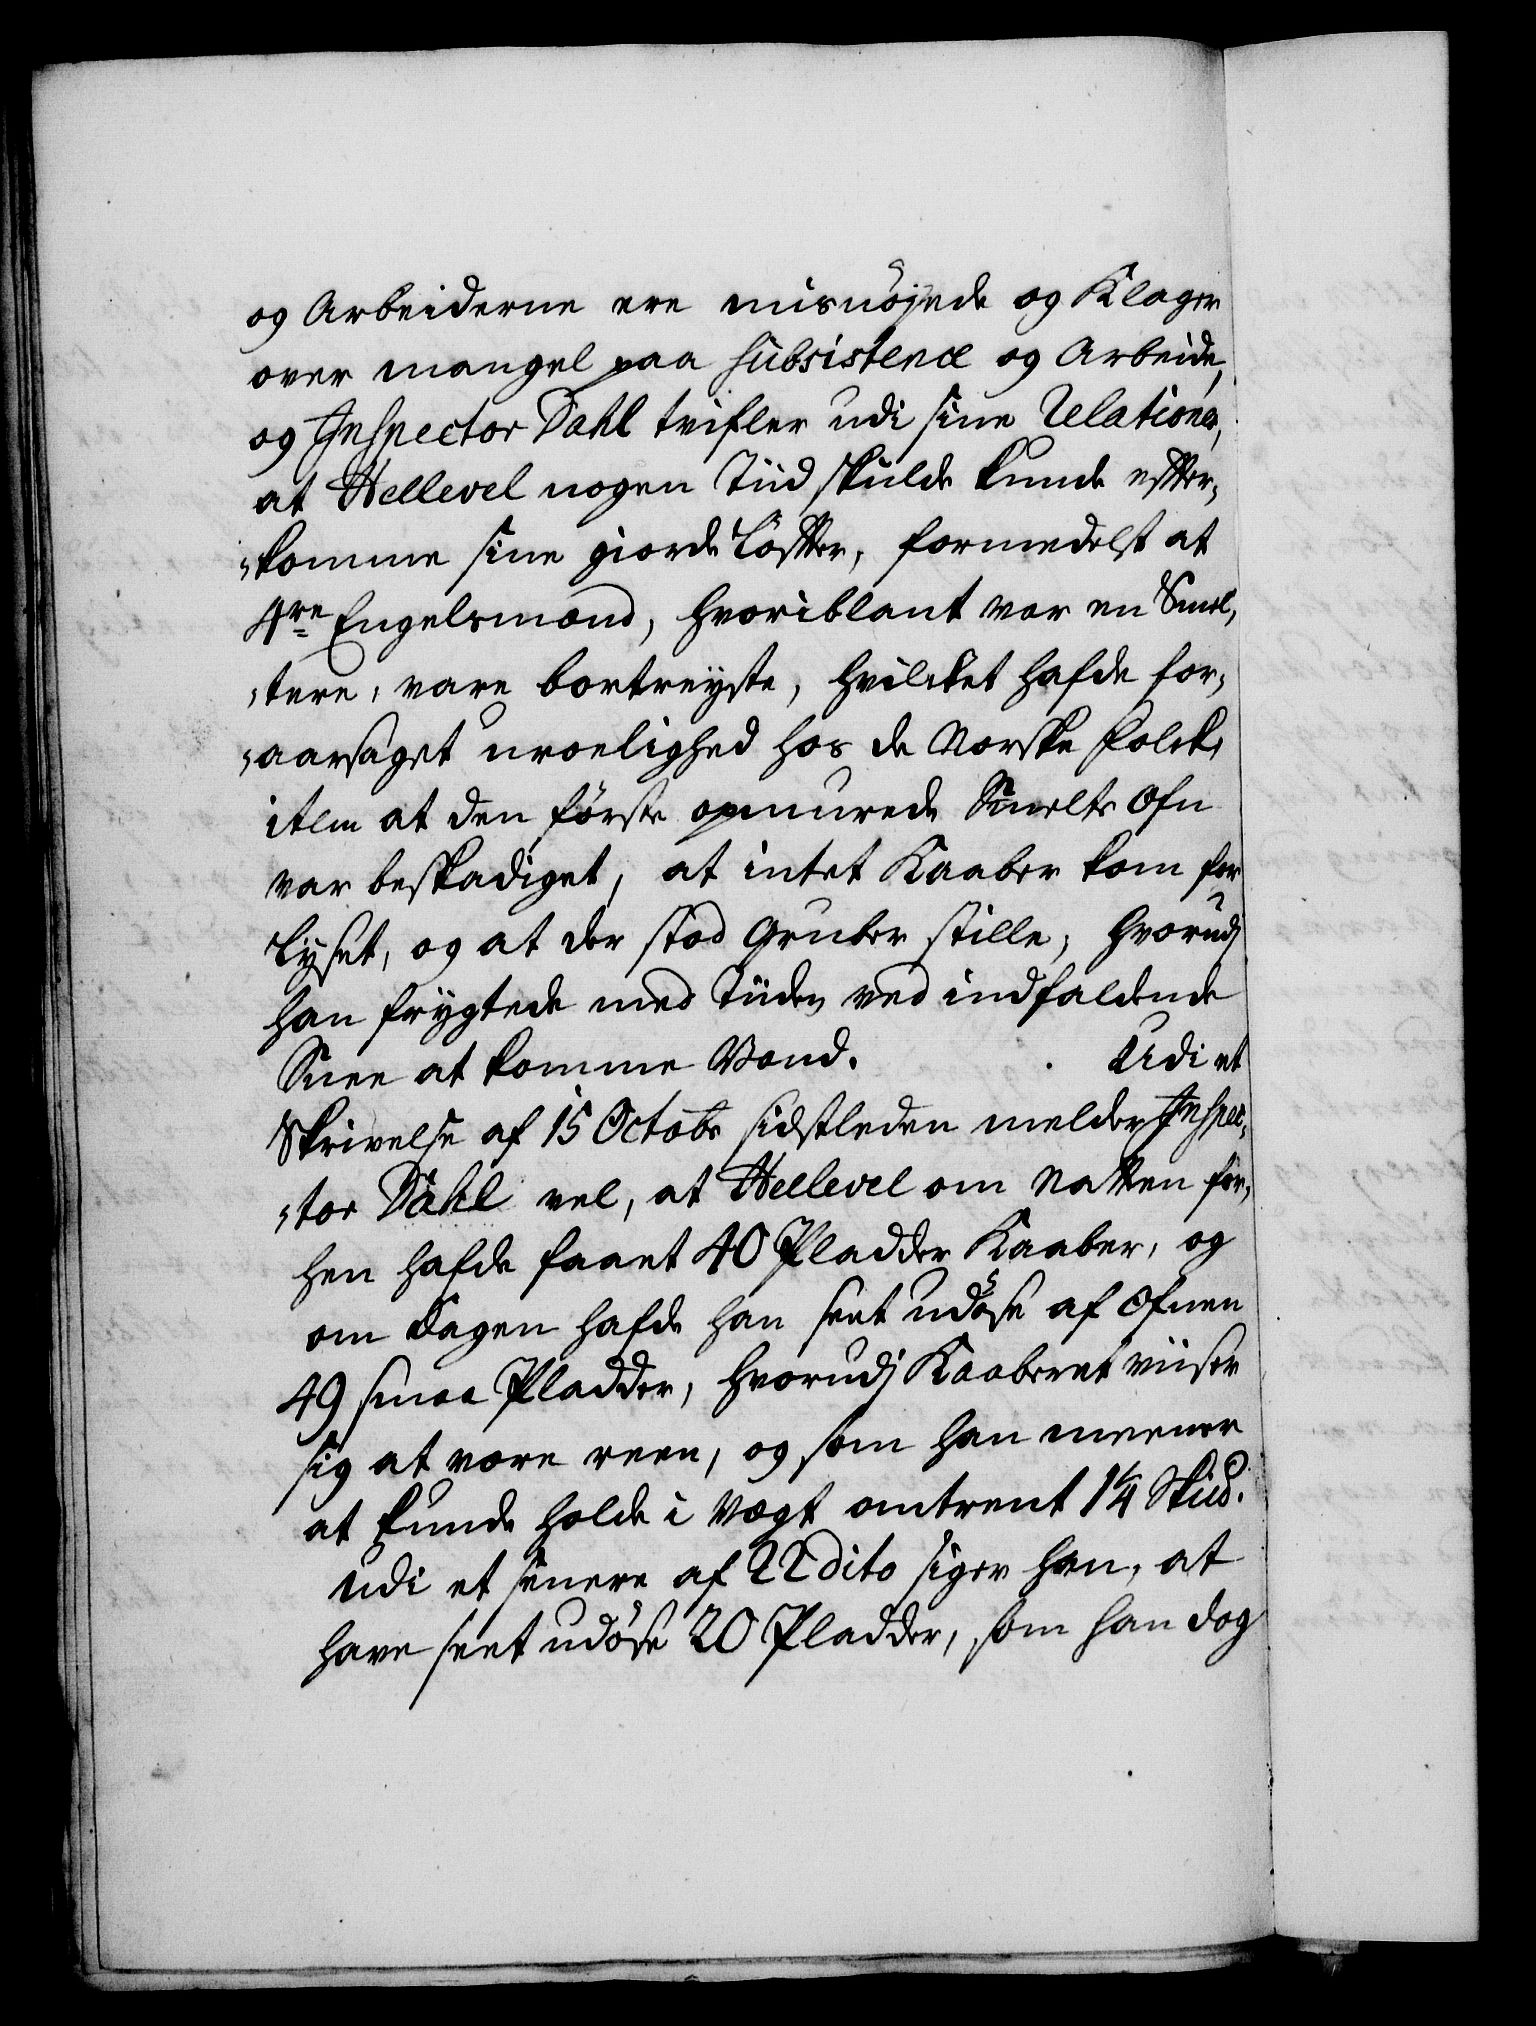 og Arbeiderne ere misnøjede og Klager
over mangel paa subsistence og Arbeide,
og Inspector Dahl tvifler udi sine Relationer,
at Hellevel nogen Tiid skulde kunde efter-
komme sine giorde Løfter, formedelst at
4re Engelsmænd, hvoriblant var en Smel-
tere, vare bortreyste, hvilcket hafde for-
aarsaget uroelighed hos de Norske Folck,
item at den første opmurede Smelte Ofn
var beskadiget, at intet Kaaber kom for
Lyset, og at der stod Gruber stille, hvorudj
han frygtede med Tiiden ved indfaldende
Snee at komme Vand. Udi et
Skrivelse af 15 Octobr sidstleden melder Inspec-
tor Dahl vel, at Hellevel om Natten før-
hen hafde faaet 40 Pladder Kaaber, og
om Dagen hafde han seet udøse af Ofnen
49 smaa Pladder, hvorudj Kaaberet viiser
sig at være reen, og som han meener
at kunde holde i Vægt omtrent 1¼ Skud.
Udi et senere af 22 dito siger han, at
have seet udøse 20 Pladder, som han dog